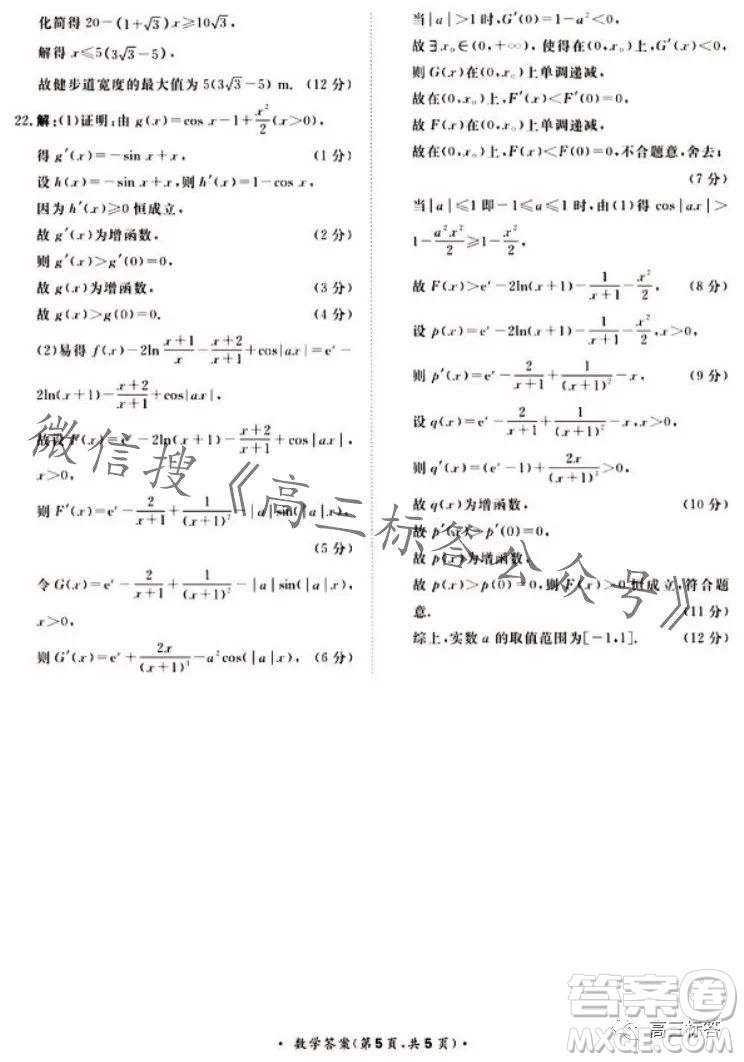 化简得20-(1+√3)x≥10√3,
解得 x≤5(3√3-5),
故健步道宽度的最大值为5(3√3-5) m. (12分)
22.解:(1)证明:由g(x)=cos x-1+x²/2(x>0),
得g′(x)=-sin x+x, (1分)
设h(x)=-sin x+x,则h′(x)=1-cos x,
因为h′(x)≥0恒成立,
故g′(x)为增函数, (2分)
则g′(x)>g′(0)=0,
故g(x)为增函数, (3分)
故g(x)>g(0)=0. (4分)
(2)易得 f(x)-2ln (x+1)/x - (x+2)/(x+1) +cos|ax|=eˣ-
2ln(x+1)-(x+2)/(x+1)+cos|ax|,
故设F(x)=eˣ-2ln(x+1)-(x+2)/(x+1)+cos|ax|,
x>0,
则F′(x)=eˣ-2/(x+1)+1/(x+1)²-|a|sin(|a|x),
(5分)
令G(x)=eˣ-2/(x+1)+1/(x+1)²-|a|sin(|a|x),
x>0,
则G′(x)=eˣ+2x/(x+1)³-a²cos(|a|x), (6分)
当|a|>1时,G′(0)=1-a²<0,
故∃x₀∈(0,+∞),使得在(0,x₀)上,G′(x)<0,
则G(x)在(0,x₀)上单调递减,
故在(0,x₀)上,F′(x)<F′(0)=0,
故F(x)在(0,x₀)上单调递减,
故在(0,x₀)上,F(x)<F(0)=0,不合题意,舍去;
(7分)
当|a|≤1即-1≤a≤1时,由(1)得cos|ax|>
1-a²x²/2≥1-x²/2,
故F(x)>eˣ-2ln(x+1)-1/(x+1)-x²/2, (8分)
设p(x)=eˣ-2ln(x+1)-1/(x+1)-x²/2,
则p′(x)=eˣ-2/(x+1)+1/(x+1)²-x, (9分)
设q(x)=eˣ-2/(x+1)+1/(x+1)²-x,x>0,
则q′(x)=(eˣ-1)+2x/(x+1)³>0,
故q(x)为增函数, (10分)
故p′(x)>p′(0)=0,
故p(x)为增函数,
故p(x)>p(0)=0,则F(x)>0恒成立,符合题
意. (11分)
综上,实数a的取值范围为[-1,1]. (12分)
微信搜《高三标答公众号》
·数学答案(第5页,共5页)·
答案卷
MXQE.COM
高三标答